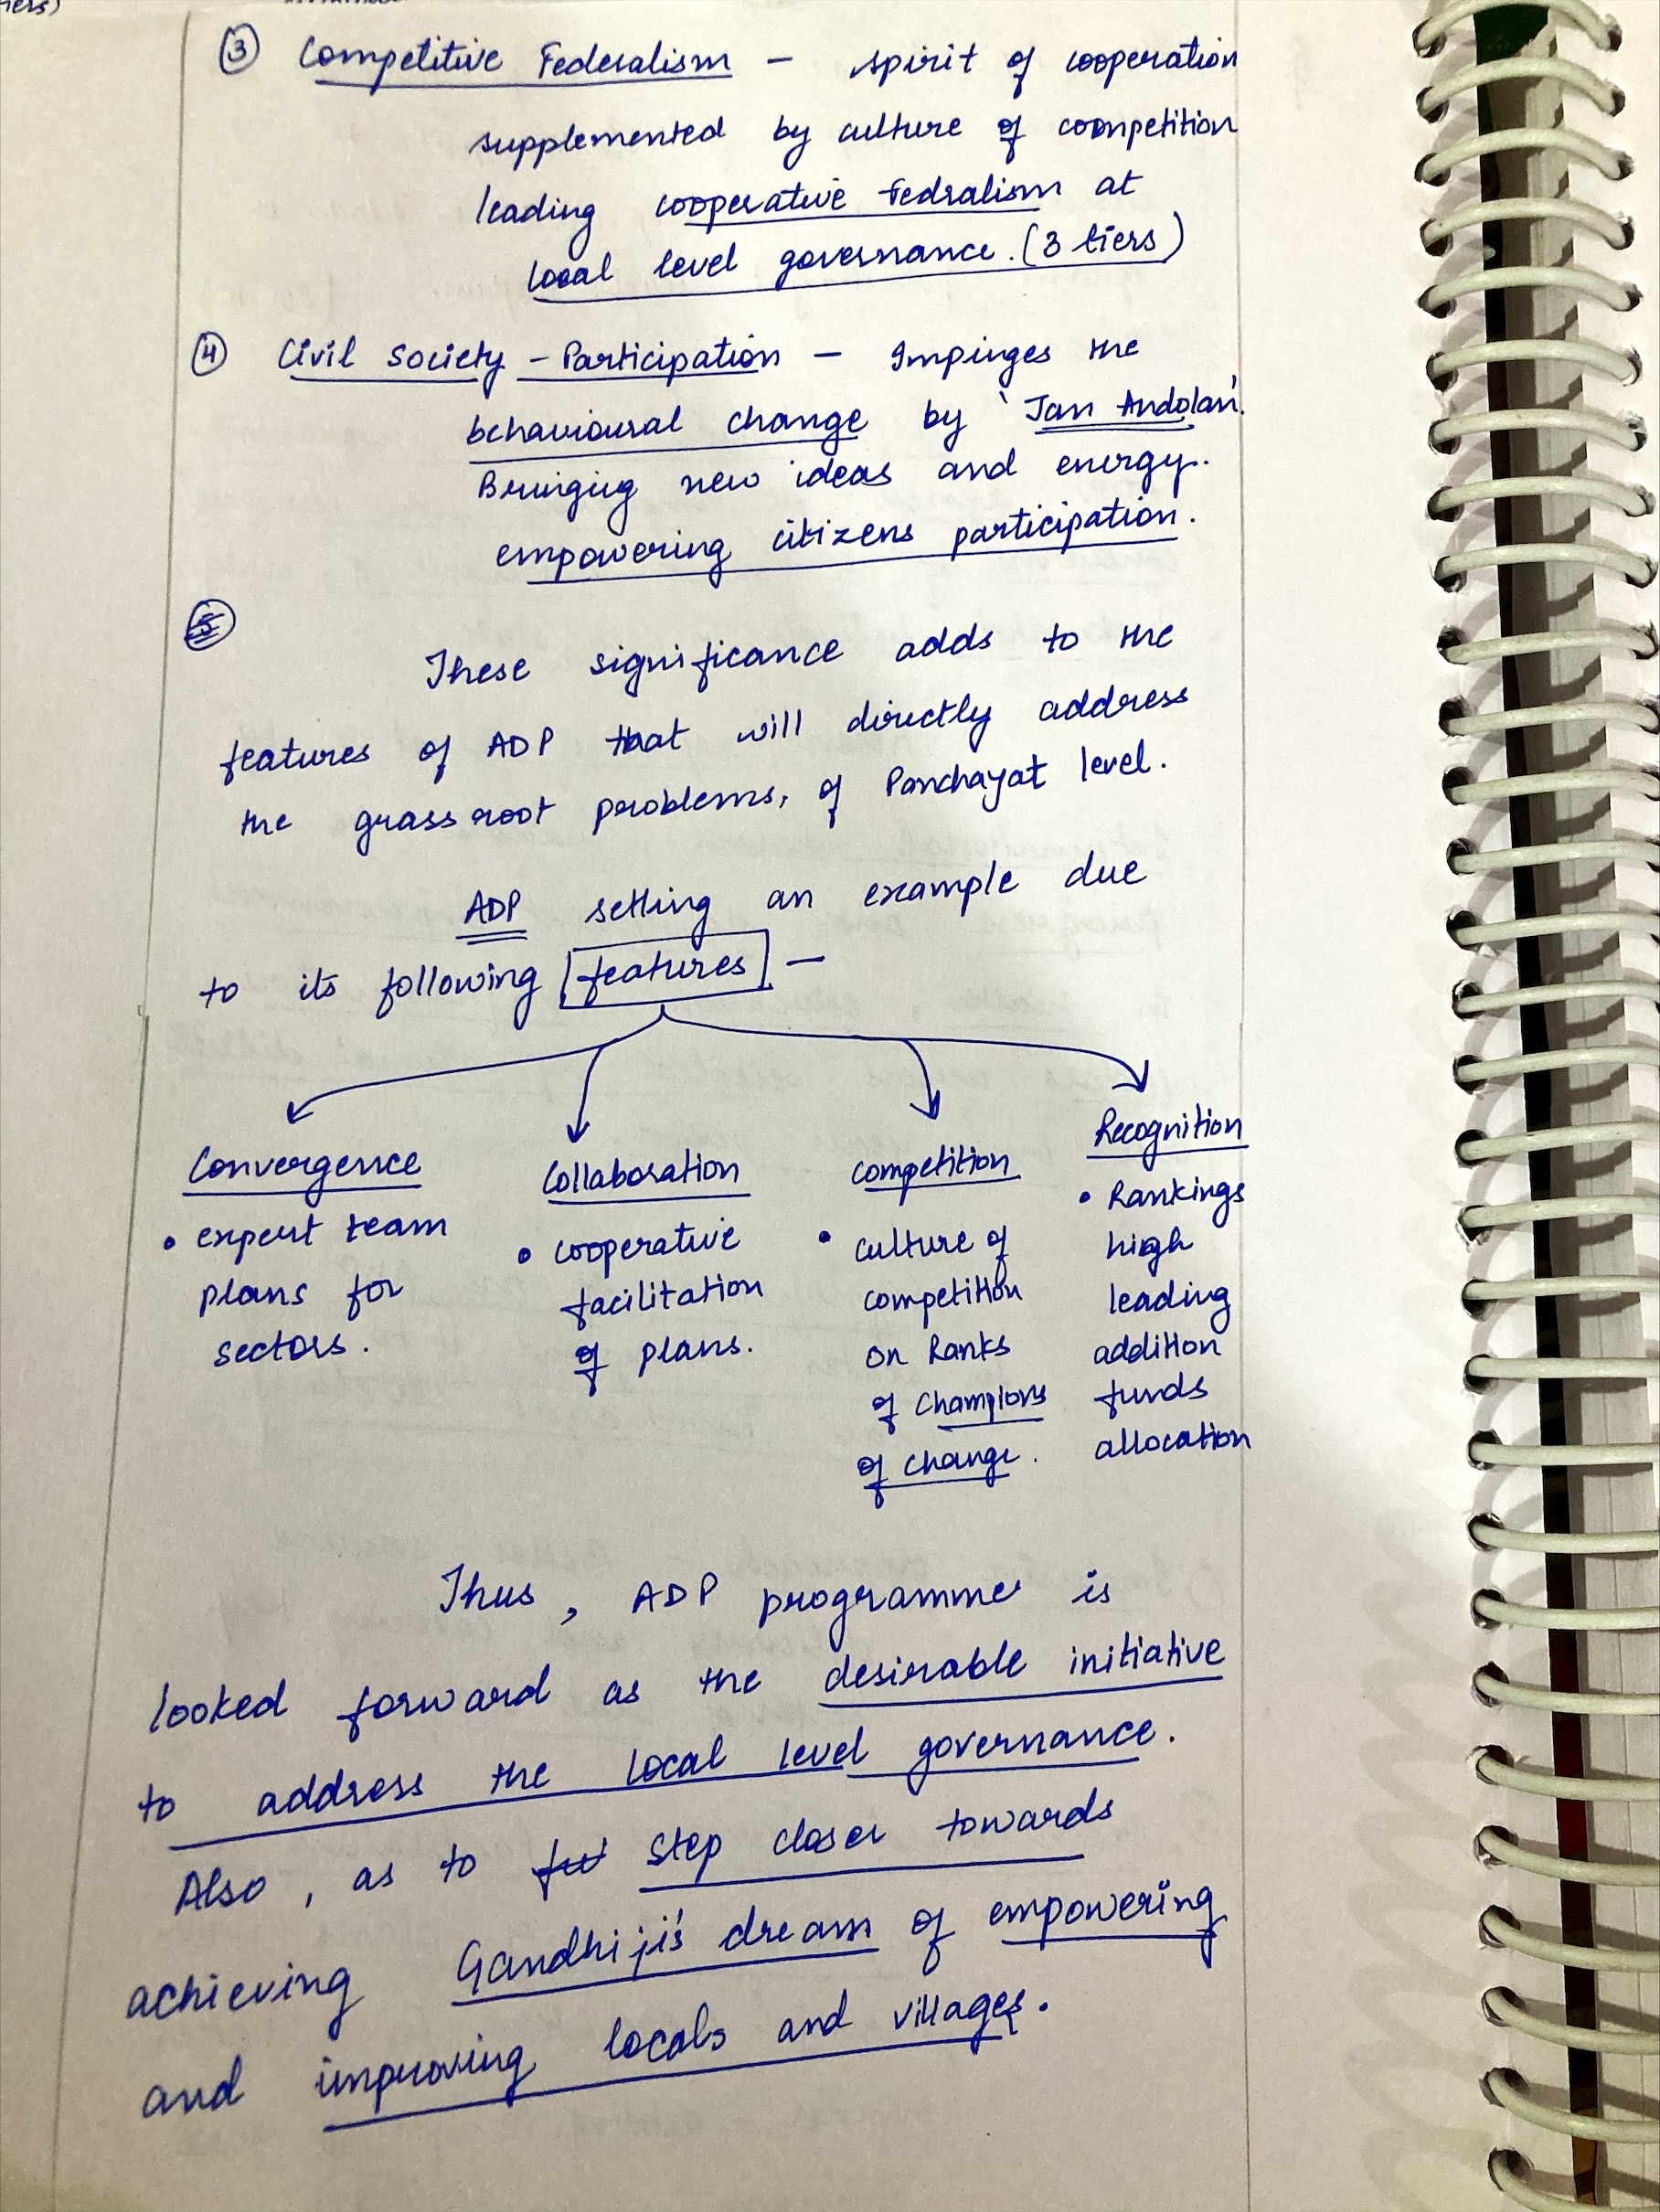 iers)
③ Competitive Federalism – spirit of cooperation
supplemented by culture of coompetition
leading cooperative Fedralism at
local level governance. (3 tiers)
④ Civil Society – Participation – Impinges the
behavioural change by 'Jan Andolan'.
Bringing new ideas and energy.
empowering citizens participation.
These significance adds to the
features of ADP that will directly address
the grass root problems, of Panchayat level.
ADP setting an example due
to its following features –
Convergence
• expert team
plans for
sectors.
Collaboration
• cooperative
facilitation
of plans.
competition
• culture of
competition
on Ranks
of Champions
of change.
Recognition
• Rankings
high
leading
addition
funds
allocation
Thus, ADP programme is
looked forward as the desirable initiative
to address the local level governance.
Also, as to step closer towards
achieving Gandhiji's dream of empowering
and improving locals and villages.